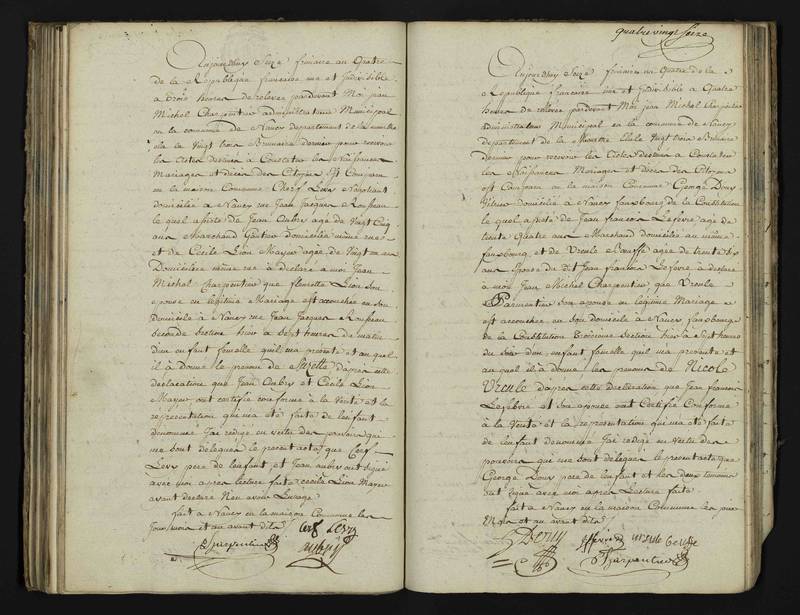 Aujourdhuy Seize frimaire an Quatre
de la République française une et Indivisible
a trois heures de relevée pardevant Moi jean
Michel Charpentier administrateur Municipal
en la commune de Nancy departement de la meurthe
élu le Vingt trois Brumaire dernier pour recevoir
les Actes destinés à Constater les Naissances
Mariages et décès des Citoyens Est Comparu
en la maison Commune Cherf Levy Negotiant
domicilié a Nancy rue Jean Jacques Rousseau
le quel assisté de Jean Aubry agé de Vingt Cinq
ans Marchand domicilié même rue
et de Cécile Lion Mayer agée de Vingt ans
Domiciliée même rue à déclaré a moi Jean
Michel Charpentier que fleurette Lion son
epouse en légitime Mariage est accouchée en son
domicile à Nancy rue Jean Jacques Rousseau
seconde section hier à sept heures du matin
D'un enfant femelle qu'il m'a présenté et au quel
il a donné le prenom de Suzette d'après cette
declaration que Jean Aubry et Cécile Lion
Mayer ont certifié conforme à la Verité et la
représentation qui m'a été faite de l'enfant
denommé J'ai redigé en vertu des pouvoirs qui
me sont delegués le present acte que Cerf
Levy pere de l'enfant, et Jean aubry ont signé
avec moi après lecture faite cecile Lion Mayer
ayant declaré Non avoir l'usage
fait a Nancy en la maison Commune les
Jour mois et an avant dits
Cerf Levy
Charpentier aubry
quatre vingt seize
Aujourdhuy Seize frimaire an Quatre de la
République française une et Indivisible a Quatre
heures de relevée pardevant Moi jean Michel Charpentier
administrateur Municipal en la commune de Nancy
departement de la Meurthe élu le Vingt trois Brumaire
dernier pour recevoir les Actes destinés a Constater
les Naissances Mariages et décès des Citoyens
est Comparu en la maison Commune George Dory
Vitrier domicilié a Nancy fauxbourg de la Constitution
le quel assisté de Jean francois Lefevre agé de
trente quatre ans Marchand domicilié au même
fauxbourg, et de Ursule agée de trente six
ans epouse du dit Jean francois Lefevre à declaré
a moi Jean Michel Charpentier que Ursule
Parmentier son epouse en legitime Mariage
est accouchée en son domicile a Nancy fauxbourg
de la Constitution Troisieme Section hier à Sept heures
du soir d'un enfant femelle qu'il m'a presenté et
au quel il à donné les prenoms de Nicole
Ursule d'après cette Declaration que Jean francois
Lefebvre et son epouse ont Certifié Conforme
à la Verité et la representation qui m'a été faite
de l'enfant denommé J'ai redigé en Vertu des
pouvoirs qui me sont delegués le present acte que
George Dory pere de l'enfant et les deux temoins
ont signé avec moi après Lecture faite
fait a Nancy en la maison Commune les jour
Mois et an avant dits
Dory
Charpentier